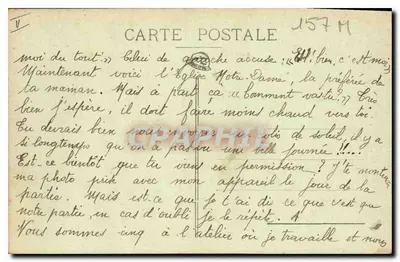 157 M
CARTE POSTALE
moi du tout.» Celui de gauche accuse: «Eh! bien, c'est moi»
Maintenant voici l'Eglise Notre Dame, la préférée de
ta maman. Mais à part ça «Comment vastu?» Très
bien j'espère, il doit faire moins chaud vers toi.
Tu devrais bien nous de soleil, il y a
si longtemps qu'on a passé une belle journée!!...
Est-ce bientôt que tu viens en permission? J'te montrerai
ma photo prise avec mon appareil le jour de la
partie. Mais est-ce que je t'ai dit ce que c'est que
notre partie, en cas d'oubli je le répète.
Nous sommes cinq à l'atelier où je travaille et nous